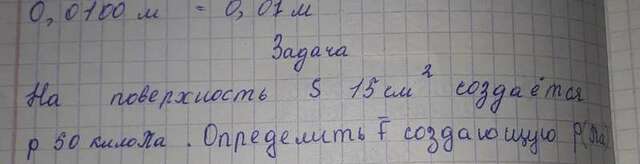 0,0100 м = 0,01 м
Задача
На поверхность S 15 см² создаётся
p 50 килоПа. Определить F̅ создающую p(Па)